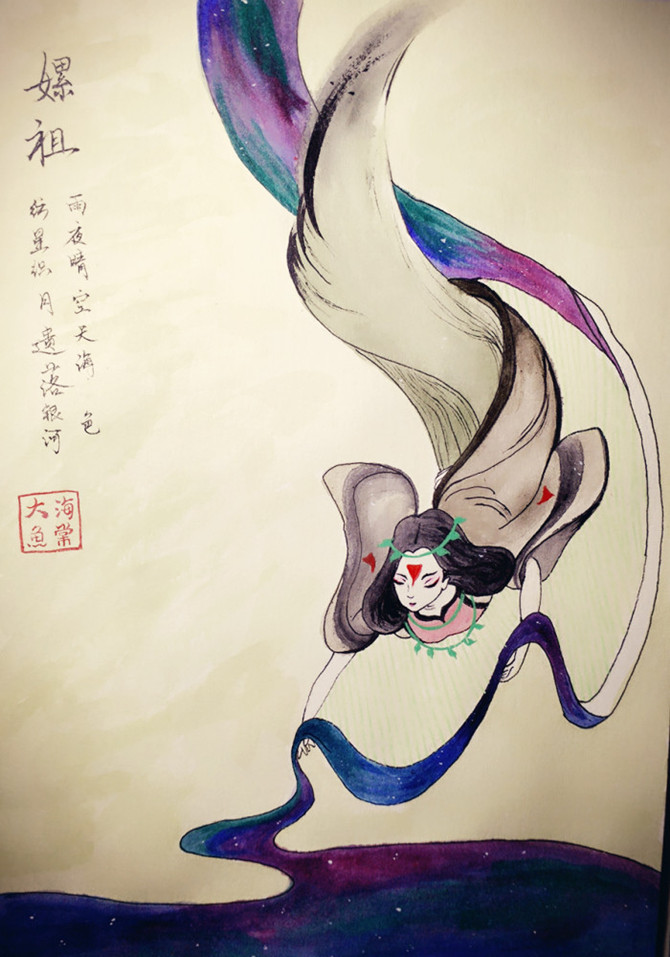 嫘祖
雨夜晴空天海 色
纺星织月遗落银河
大海
魚棠